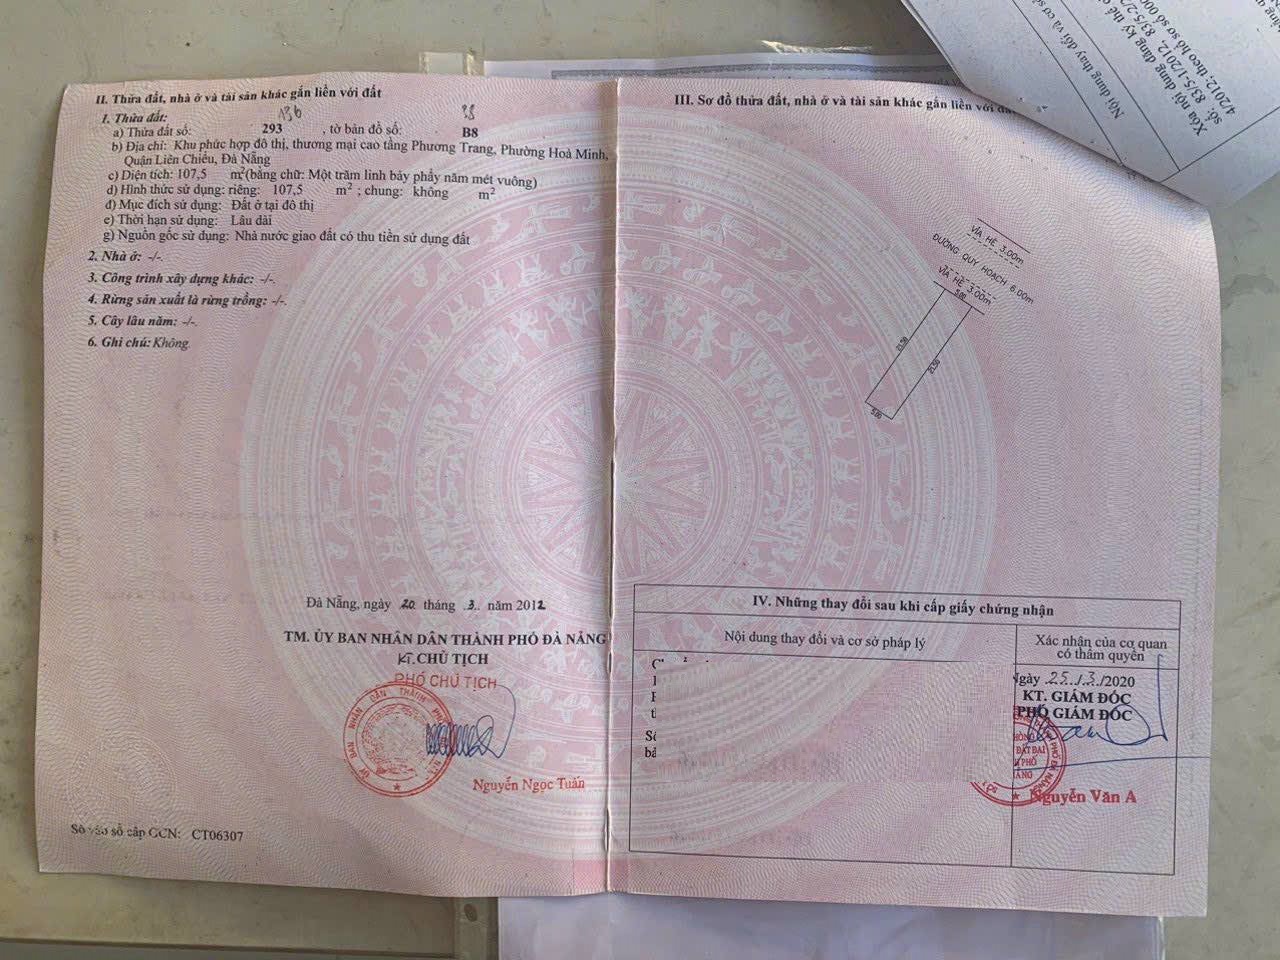 II. Thửa đất, nhà ở và tài sản khác gắn liền với đất
1. Thửa đất:
136 38
a) Thửa đất số: 293 , tờ bản đồ số: B8
b) Địa chỉ: Khu phức hợp đô thị, thương mại cao tầng Phương Trang, Phường Hoà Minh,
Quận Liên Chiểu, Đà Nẵng
c) Diện tích: 107,5 m²(bằng chữ: Một trăm linh bảy phẩy năm mét vuông)
d) Hình thức sử dụng: riêng: 107,5 m² ; chung: không m²
đ) Mục đích sử dụng: Đất ở tại đô thị
e) Thời hạn sử dụng: Lâu dài
g) Nguồn gốc sử dụng: Nhà nước giao đất có thu tiền sử dụng đất
2. Nhà ở: -/-.
3. Công trình xây dựng khác: -/-.
4. Rừng sản xuất là rừng trồng: -/-.
5. Cây lâu năm: -/-.
6. Ghi chú: Không
Đà Nẵng, ngày 20 tháng 3. năm 2012
TM. ỦY BAN NHÂN DÂN THÀNH PHỐ ĐÀ NẴNG
KT.CHỦ TỊCH
PHÓ CHỦ TỊCH
ỦY BAN NHÂN DÂN THÀNH PHỐ
Nguyễn Ngọc Tuấn
Số vào sổ cấp GCN: CT06307
III. Sơ đồ thửa đất, nhà ở và tài sản khác gắn liền với
VỈA HÈ 3.00m
ĐƯỜNG QUY HOẠCH 6.00m
VỈA HÈ 3.00m
5.00
21.50
21.50
5.00
IV. Những thay đổi sau khi cấp giấy chứng nhận
Nội dung thay đổi và cơ sở pháp lý
Xác nhận của cơ quan
có thẩm quyền
Ngày 25/3/2020
KT. GIÁM ĐỐC
PHÓ GIÁM ĐỐC
ĐẤT ĐAI
Nguyễn Văn A
Nội dung thay đổi và cơ sở
Xóa nội dung đăng ký thế
số: 83/5-1/2012, 83/5-2/
4/2012; theo hồ sơ số 000